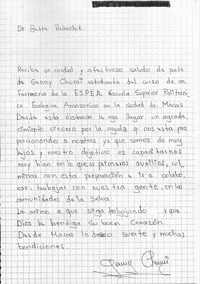 Dr. Bubba
Reciba un cordial y afectuoso saludo de parte
de Sanny Chumpi estudiante del curso de en
Farmeria de la E.S.P.E.A. Escuela Superior Politecni
ca Ecologica Amazonica en la ciudad de Macas
Desde esta distancia le ago llegar un agrade
cimiento sincero por la ayuda q nos esta pro
porcionando a nosotros ya que somos de muy
lejos y nuestro objetivo es capacitarnos
muy bien en lo que es primeros auxilios, cul
minar con esta preparación e ir a colabo
rar, trabajar con nuestra gente, en las
comunidades de la Selva
Le animo a que siga trabajando y que
Dios le bendiga su buen Corazón.
Desde Macas le deseo suerte y muchas
bendiciones.